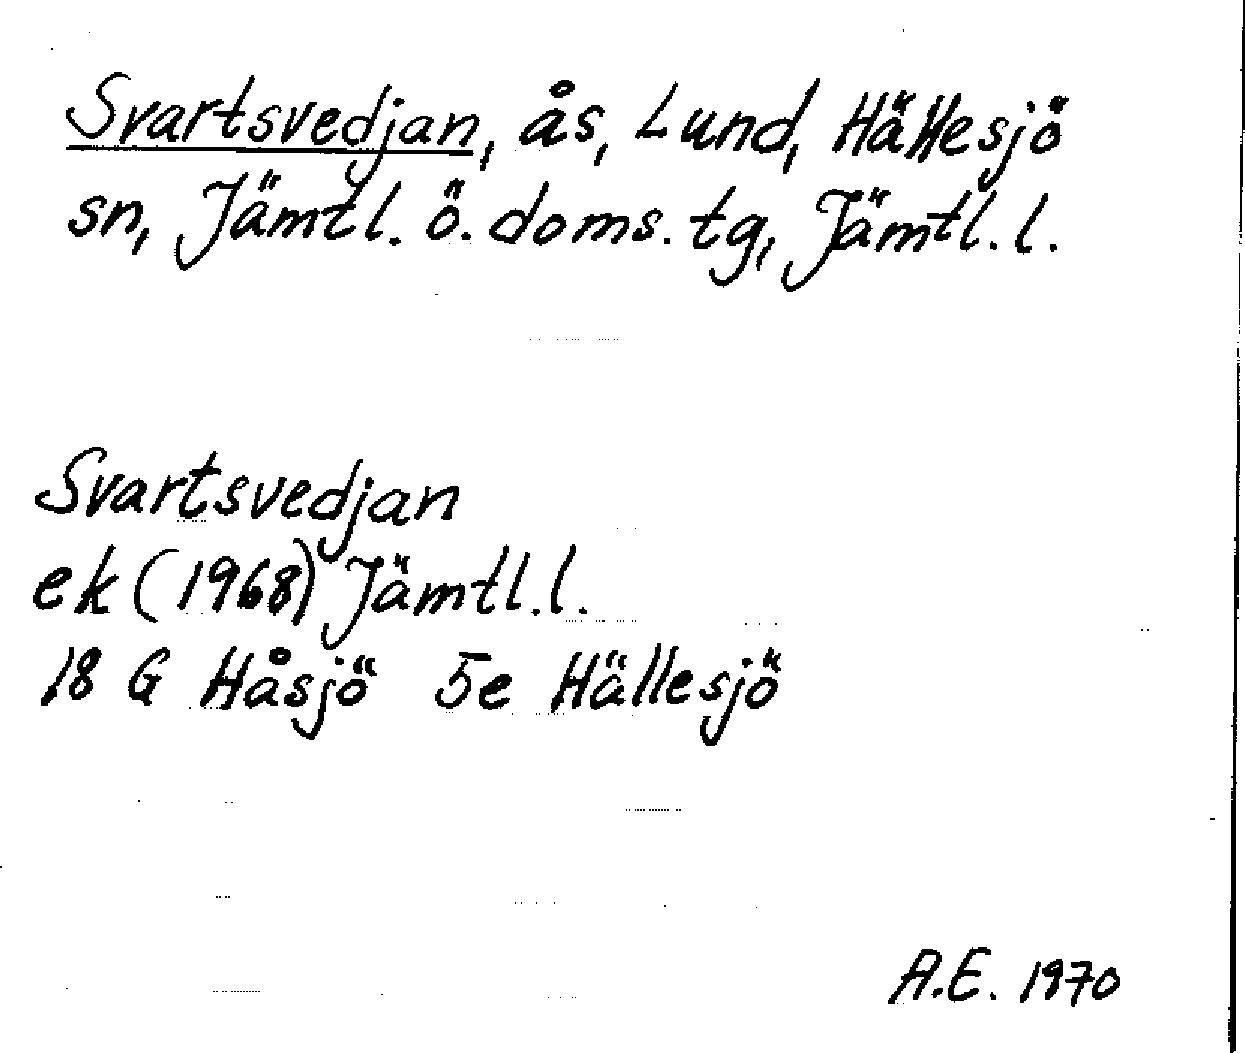 Svartsvedjan, ås, Lund, Hällesjö
sn, Jämtl. ö. doms. tg, Jämtl. l.
Svartsvedjan
ek (1968) Jämtl. l.
18 G Håsjö 5e Hällesjö
A.E. 1970